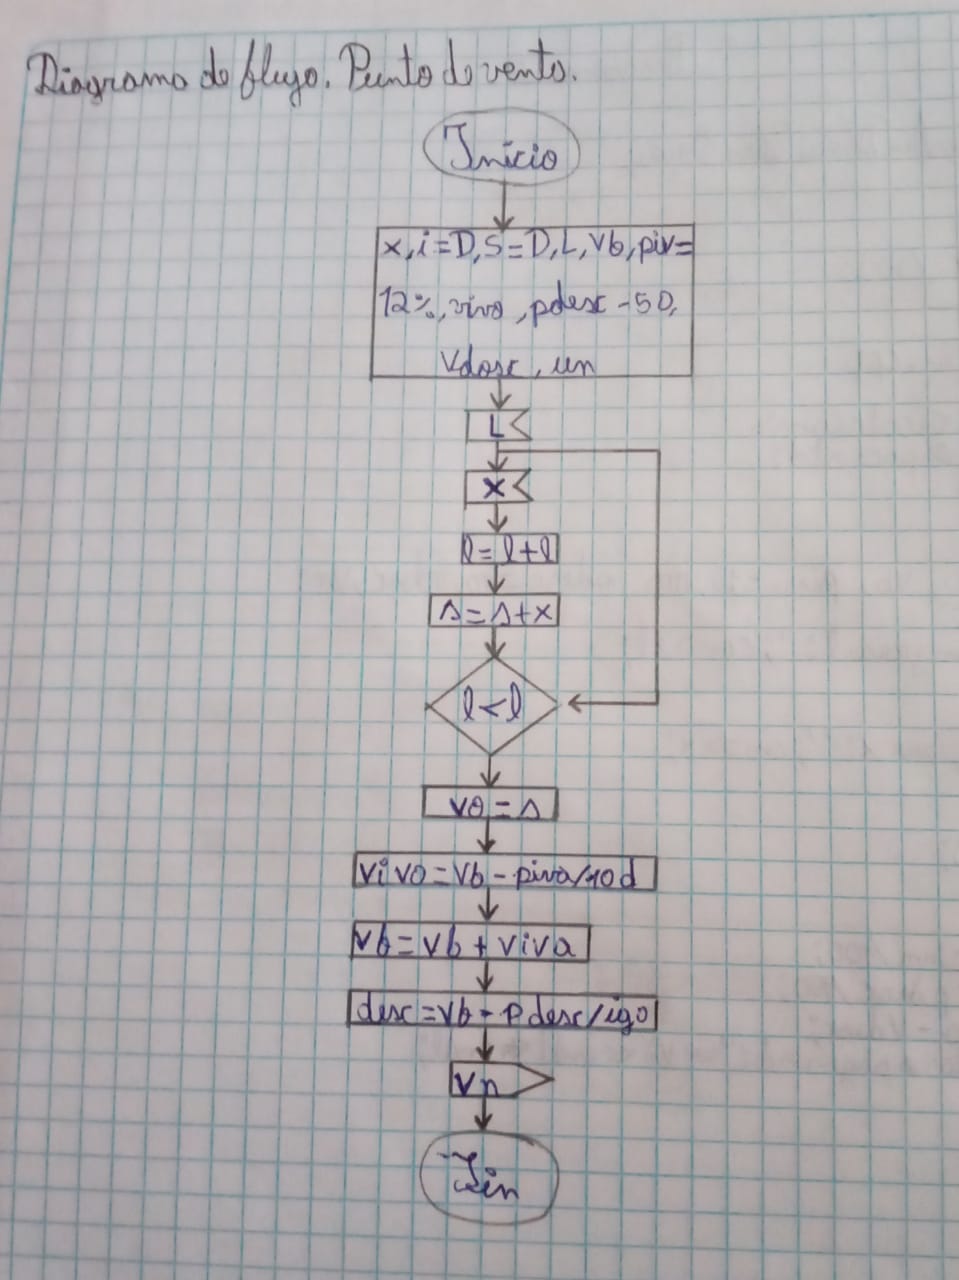 Diagrama de flujo. Punto de venta.
Inicio
x, i=D, S=D, L, Vb, piv=
12%, viva, pdesc -50,
Vdesc, un
L
x
l=l+l
s=s+x
l<l
vo=s
vivo=vb-piva/10d
vb=vb+viva
desc=vb-Pdesc/igo
vn
Fin